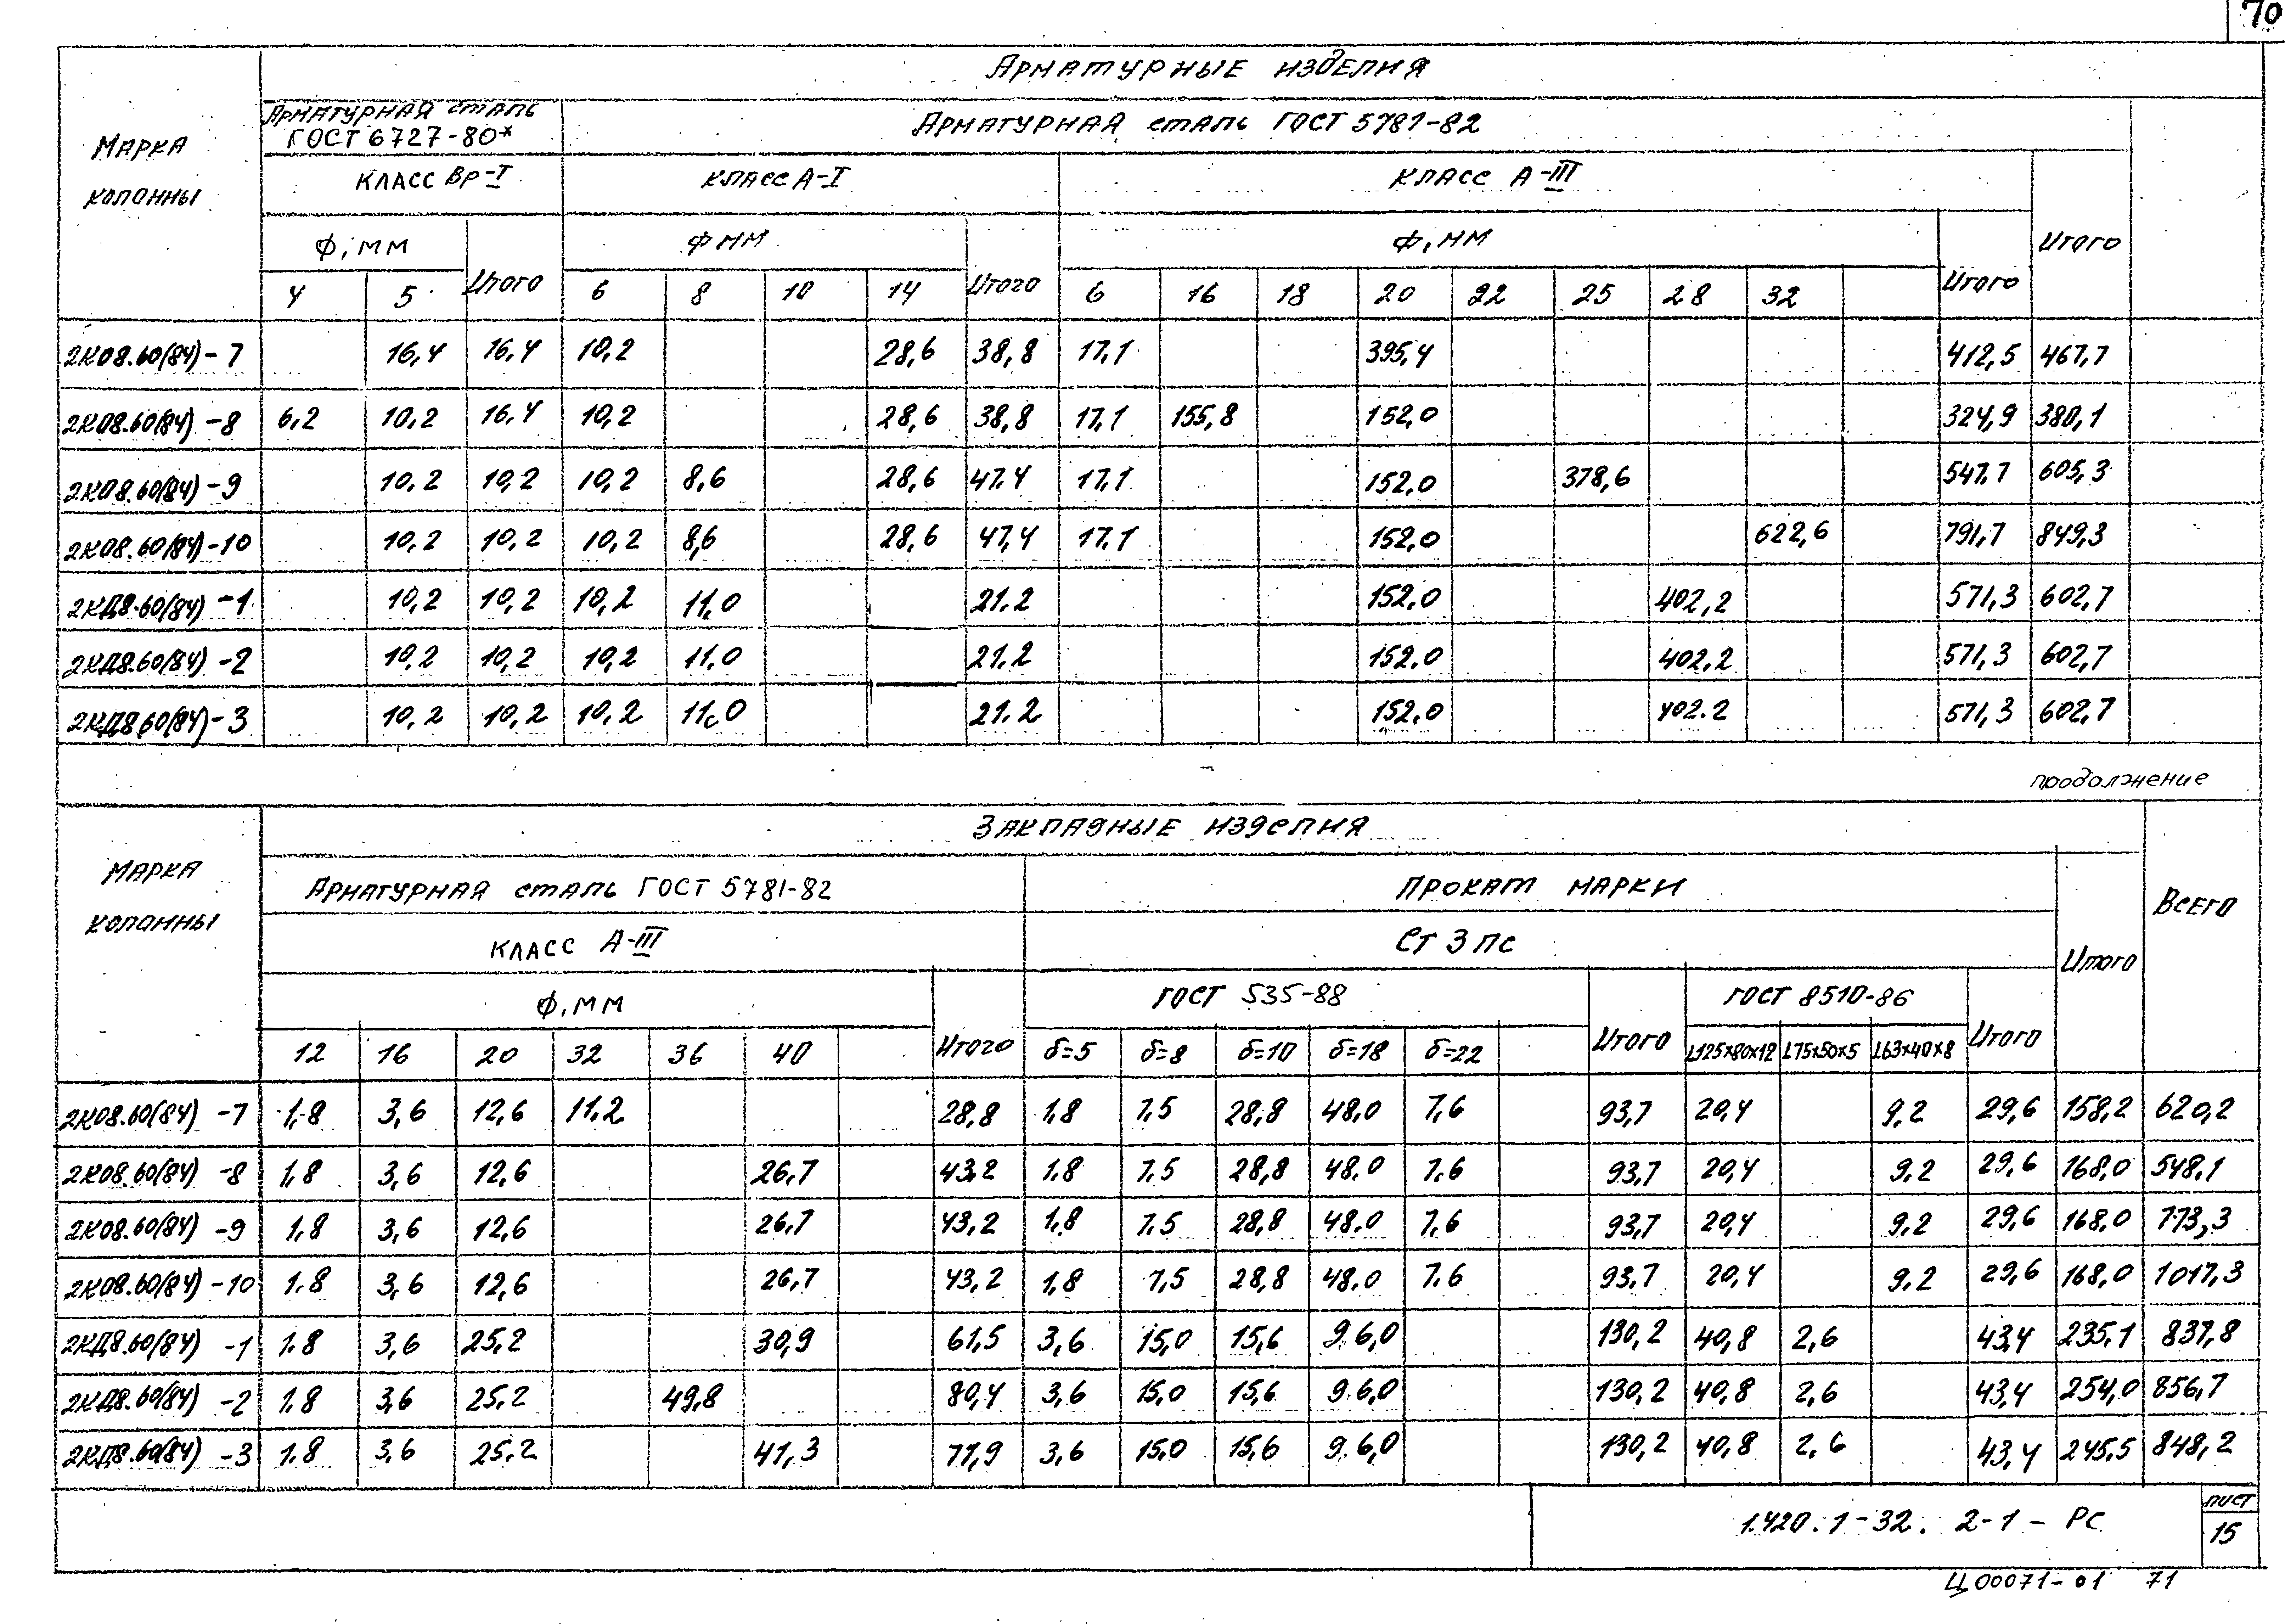 70
Арматурные изделия
Марка колонны
Арматурная сталь ГОСТ 6727-80*
Арматурная сталь ГОСТ 5781-82
Класс Вр-I
Класс А-I
Класс А-III
Ф, мм
Итого
Ф мм
Итого
Ф, мм
Итого
Итого
4 5 6 8 10 14 6 16 18 20 22 25 28 32
2КО8.60(84)-7 16,4 16,4 10,2 28,6 38,8 17,1 395,4 412,5 467,7
2КО8.60(84)-8 6,2 10,2 16,4 10,2 28,6 38,8 17,1 155,8 152,0 324,9 380,1
2КО8.60(84)-9 10,2 10,2 10,2 8,6 28,6 47,4 17,1 152,0 378,6 547,7 605,3
2КО8.60(84)-10 10,2 10,2 10,2 8,6 28,6 47,4 17,1 152,0 622,6 791,7 849,3
2КД8.60(84)-1 10,2 10,2 10,2 11,0 21.2 152,0 402,2 571,3 602,7
2КД8.60(84)-2 10,2 10,2 10,2 11,0 21.2 152,0 402,2 571,3 602,7
2КД8.60(84)-3 10,2 10,2 10,2 11,0 21.2 152,0 402.2 571,3 602,7
продолжение
Закладные изделия
Марка колонны
Арматурная сталь ГОСТ 5781-82
Прокат марки
Всего
Класс А-III
Ст 3 пс
Итого
Ф, мм
Итого
ГОСТ 535-88
Итого
ГОСТ 8510-86
Итого
12 16 20 32 36 40 δ=5 δ=8 δ=10 δ=18 δ=22 L125х80х12 L75х50х5 L63х40х8
2КО8.60(84) -7 1,8 3,6 12,6 11,2 28,8 1,8 7,5 28,8 48,0 7,6 93,7 20,4 9,2 29,6 158,2 620,2
2КО8.60(84) -8 1,8 3,6 12,6 26,7 43,2 1.8 7,5 28,8 48.0 7.6 93,7 20,4 9.2 29,6 168,0 548,1
2КО8.60(84) -9 1.8 3,6 12,6 26,7 43,2 1,8 7,5 28,8 48.0 7,6 93,7 20,4 9.2 29,6 168,0 773,3
2КО8.60(84) -10 1.8 3,6 12,6 26,7 43,2 1,8 7,5 28,8 48.0 7.6 93,7 20,4 9.2 29,6 168,0 1017,3
2КД8.60(84) -1 1.8 3,6 25,2 30,9 61,5 3,6 15,0 15,6 96,0 130,2 40,8 2,6 43,4 235.1 837,8
2КД8.60(84) -2 1.8 3,6 25,2 49,8 80,4 3,6 15,0 15,6 96,0 130,2 40,8 2,6 43,4 254,0 856,7
2КД8.60(84) -3 1.8 3,6 25,2 41,3 71,9 3,6 15,0 15,6 96,0 130,2 40,8 2,6 43,4 245,5 848,2
1.420.1-32. 2-1-РС
лист
15
Ц00071-01 71